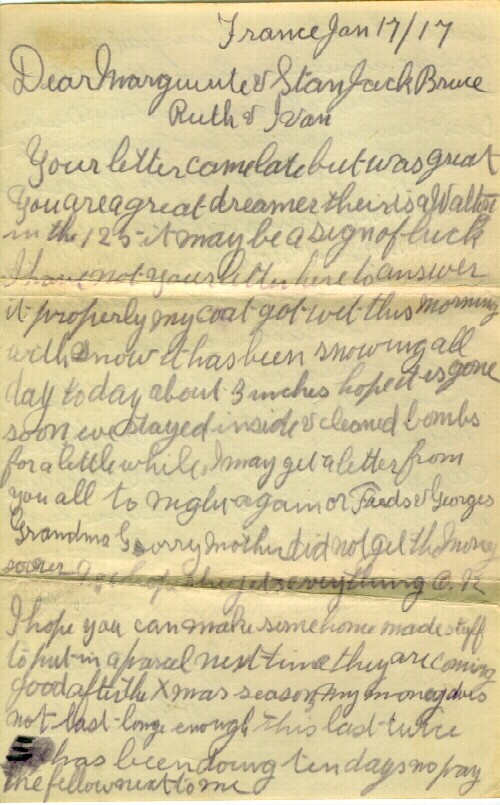 France Jan 17/17
Dear Marguerite & Stan Jack Bruce
Ruth & Ivan
Your letter came late but was great
You are a great dreamer their is a Walter
in the 125 it may be a sign of luck
I have not your letter here to answer
it properly my coat got wet this morning
with snow it has been snowing all
day to day about 3 inches hope it is gone
soon we stayed inside & cleaned bombs
for a little while, I may get a letter from
you all to night again or Freds & Georges
Grandma G sorry Mother did not get the Money
sooner I hope she gets everything O.K
I hope you can make some home made stuff
to put in a parcel next time they are coming
good after the Xmas season, my money does
not last long enough this last twice
has been doing ten days no pay
the fellow next to me